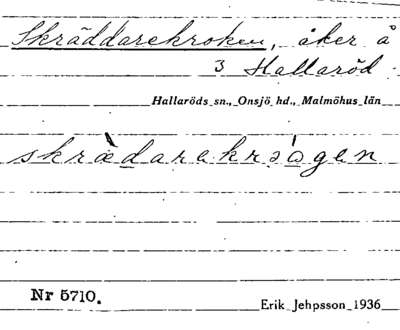 Skräddarekroken, åker å
3 Hallaröd.
Hallaröds sn., Onsjö hd., Malmöhus län
Nr 5710.
Erik Jehpsson 1936